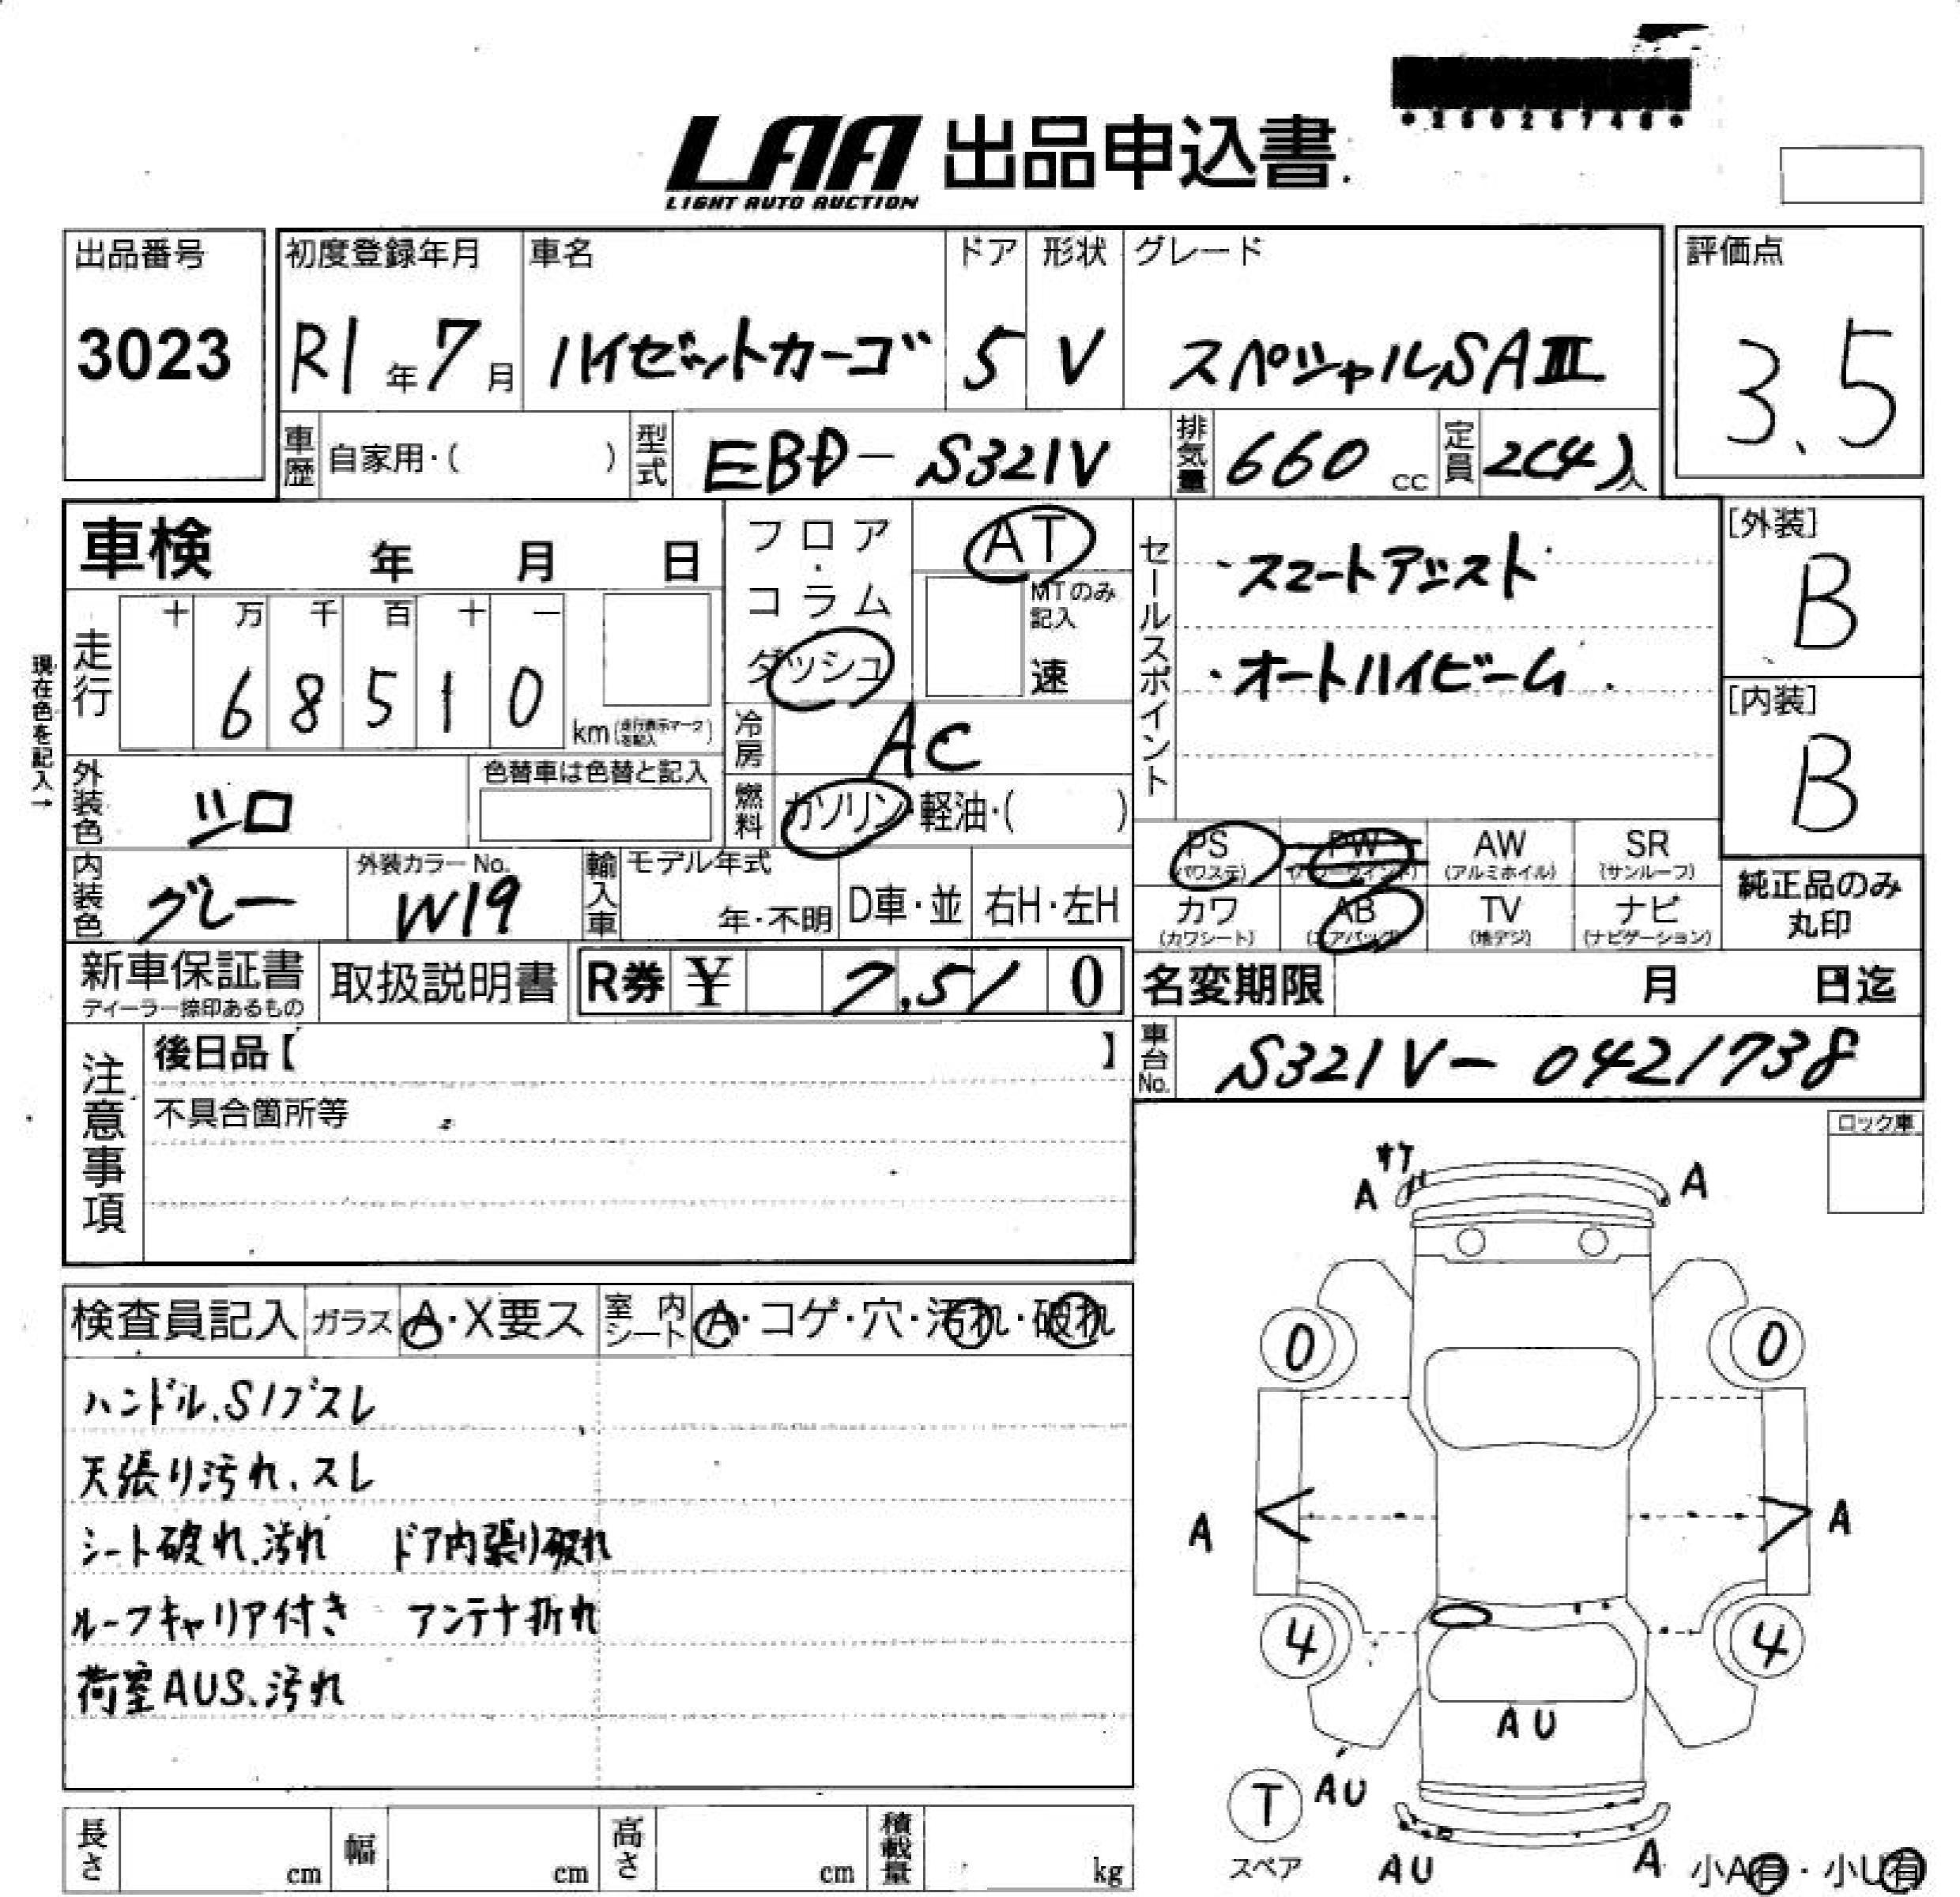 LAA 出品申込書
LIGHT AUTO AUCTION
出品番号
3023
初度登録年月
R1年7月
車名
ハイゼットカーゴ
ドア
5
形状
V
グレード
スペシャルSAⅢ
評価点
3.5
車歴 自家用・( )
型式 EBD-S321V
排気量 660 cc
定員 2(4)人
車検 年 月 日
フロア・コラム
ダッシュ
AT
MTのみ記入
速
セールスポイント
・スマートアシスト
・オートハイビーム
[外装]
B
[内装]
B
現在色を記入→
走行
十 万 千 百 十 一
6 8 5 1 0
km(走行表示マークを記入)
冷房 AC
燃料 ガソリン・軽油・( )
外装色 シロ
色替車は色替と記入
内装色 グレー
外装カラーNo.
W19
輸入車
モデル年式
年・不明
D車・並
右H・左H
PS (パワステ)
PW (パワーウインド)
AW (アルミホイル)
SR (サンルーフ)
カワ (カワシート)
AB (エアバッグ)
TV (地デジ)
ナビ (ナビゲーション)
純正品のみ
丸印
新車保証書
ディーラー捺印あるもの
取扱説明書
R券 ¥ 7,510
名変期限 月 日迄
車台No. S321V-0421738
注意事項
後日品【 】
不具合箇所等
ロック車
検査員記入
ガラス A・X要ス
室内シート A・コゲ・穴・汚れ・破れ
ハンドル、S/ブスレ
天張り汚れ、スレ
シート破れ、汚れ ドア内張り破れ
ルーフキャリア付き アンテナ折れ
荷室AUS、汚れ
A
A
0
0
A
A
4
4
AU
T
スペア
AU
AU
A
小A有・小U有
長さ cm
幅 cm
高さ cm
積載量 kg